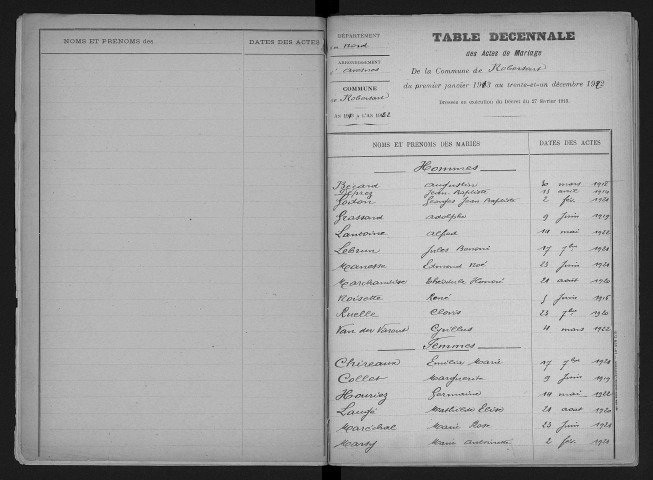 NOMS ET PRENOMS des
DATES DES ACTES
DÉPARTEMENT
du Nord
ARRONDISSEMENT
d'Avesnes
COMMUNE
de Robersart
TABLE DECENNALE
des Actes de Mariage
De la Commune de Robersart
du premier janvier 1913 au trente-et-un décembre 1922
Dressée en exécution du Décret du
NOMS ET PRENOMS DES MARIÉS
DATES DES ACTES
Hommes
Augustin 30 mars 1918
Deprez Jean Baptiste 13 avril 1914
Godon Georges Jean Baptiste 2 fév. 1921
Grassart Adolphe 9 juin 1919
Lantoine Alfred mai 1922
Lebrun Jules 17 7bre 1921
Manesse Edmond Noé 23 juin 1921
Marchandise Honoré 28 août 1920
Noisette René 5 juin 1916
Ruelle Clovis 23 7bre 1920
Cyrillus 4 mars 1922
Femmes
Chireaux Emilia Marie 17 7bre 1921
Collet Marguerite 9 juin 1919
Houriez Germaine mai 1922
Laugé Mathilde Elise 28 août 1920
Maréchal Marie Rose 23 juin 1921
Marty Marie Antoinette 2 fév. 1921